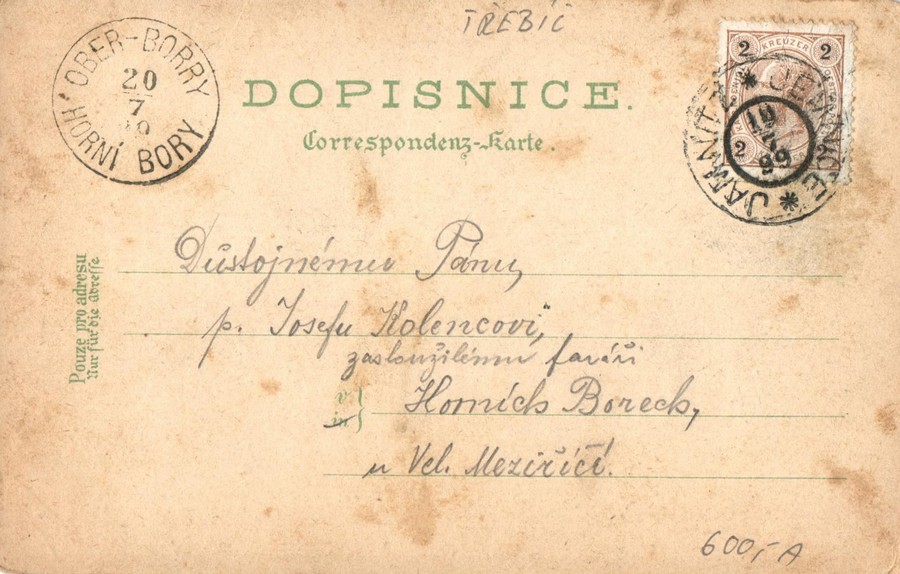 TŘEBÍČ
OBER-BORRY
20
7
HORNÍ BORY
DOPISNICE.
Correspondenz-Karte.
2 KREUZER 2
2 2
JAMNITZ * JEMNICE *
19
99
Pouze pro adresu
Nur für die Adresse
Důstojnému Pánu,
p. Josefu Kolencovi,
zasloužilému faráři
v
in
Horních Borech,
u Vel. Meziříčí.
600,- A